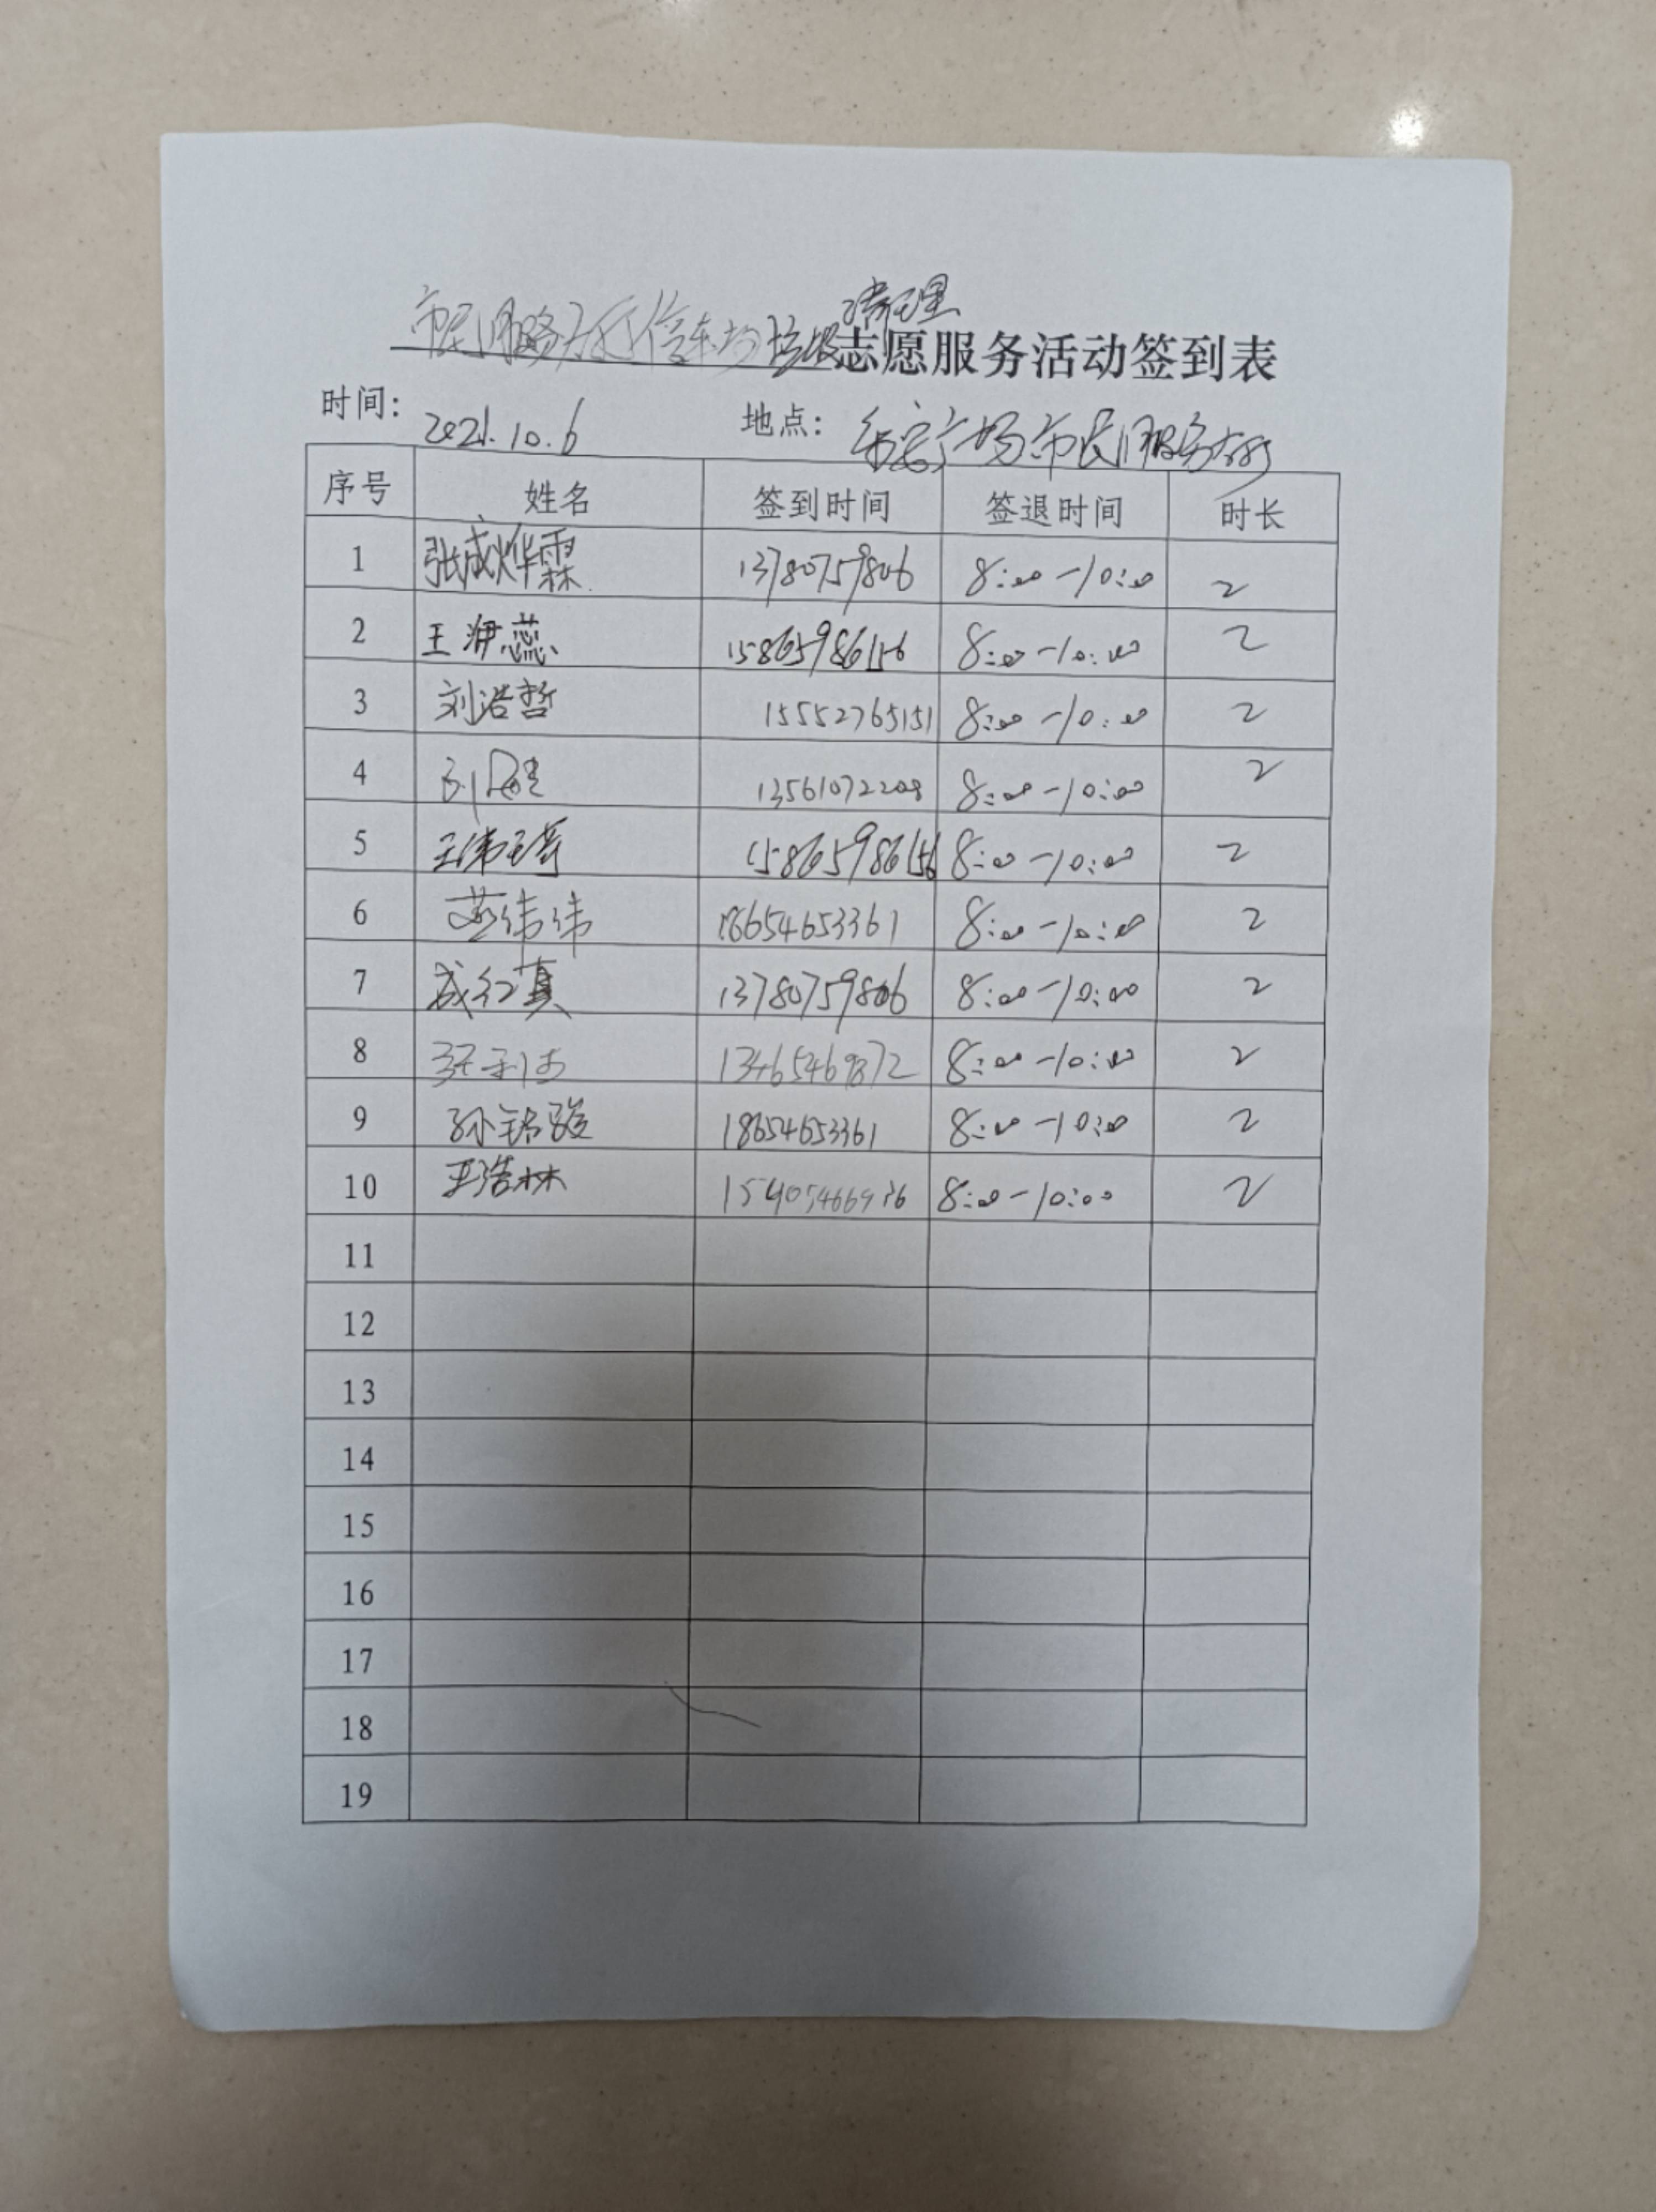 清理
市民服务大厅停车场垃圾志愿服务活动签到表
时间: 2021.10.6 地点: 广场市民服务大厅
序号 姓名 签到时间 签退时间 时长
1 张成烨霖 13780759806 8:00-10:00 2
2 王湃蕊 15865986156 8:00-10:00 2
3 刘浩哲 15552765151 8:00-10:00 2
4 13561072208 8:00-10:00 2
5 15865986156 8:00-10:00 2
6 燕伟伟 18654653361 8:00-10:00 2
7 成红真 13780759806 8:00-10:00 2
8 13465469872 8:00-10:00 2
9 孙锦骏 18654653361 8:00-10:00 2
10 王浩林 8:00-10:00 2
11
12
13
14
15
16
17
18
19